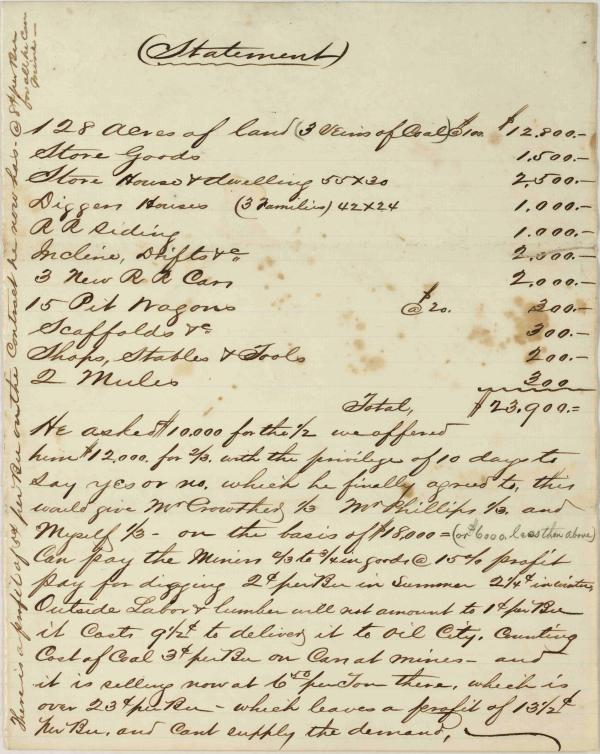 (Statement)
128 Acres of land (3 Veins of Coal) $100. $12.800.-
Store Goods 1.500.-
Store House & dwelling 55x30 2,500.-
Diggers Houses (3 Families) 42x24 1,000.-
R R Siding 1.000.-
Incline, Drifts &c 2,000.-
3 New R R Cars 2.000.-
15 Pit Wagons @ $20. 300.-
Scaffolds &c 300.-
Shops, Stables & Tools 200.-
2 Mules 300
Total, $23,900.=
He asked $10.000 for the 1/2 we offered
him $12,000. for 2/3. with the privilege of 10 days to
say yes or no, which he finally agreed to, this
would give Mr Crowther 1/3 Mr Phillips 1/3. and
Myself 1/3 - on the basis of $18,000 = (or $6000. less than above)
Can pay the Miners 2/3 to 3/4 in goods @ 15% profit
pay for digging 2¢ per Bu in Summer 2 1/4¢ in winter,
Outside Labor & lumber will not amount to 1¢ per Bu
it Costs 9 1/2¢ to deliver it to Oil City. Counting
Cost of Coal 3¢ per Bu on Cars at mines - and
it is selling now at 6.50 per Ton there, which is
over 23¢ per Bu - which leaves a profit of 13 1/2¢
per Bu. and cant supply the demand,
There is a profit of 5¢ per Bu on the Contract he now has - @ 8¢ per Bu
for all he can
mine -